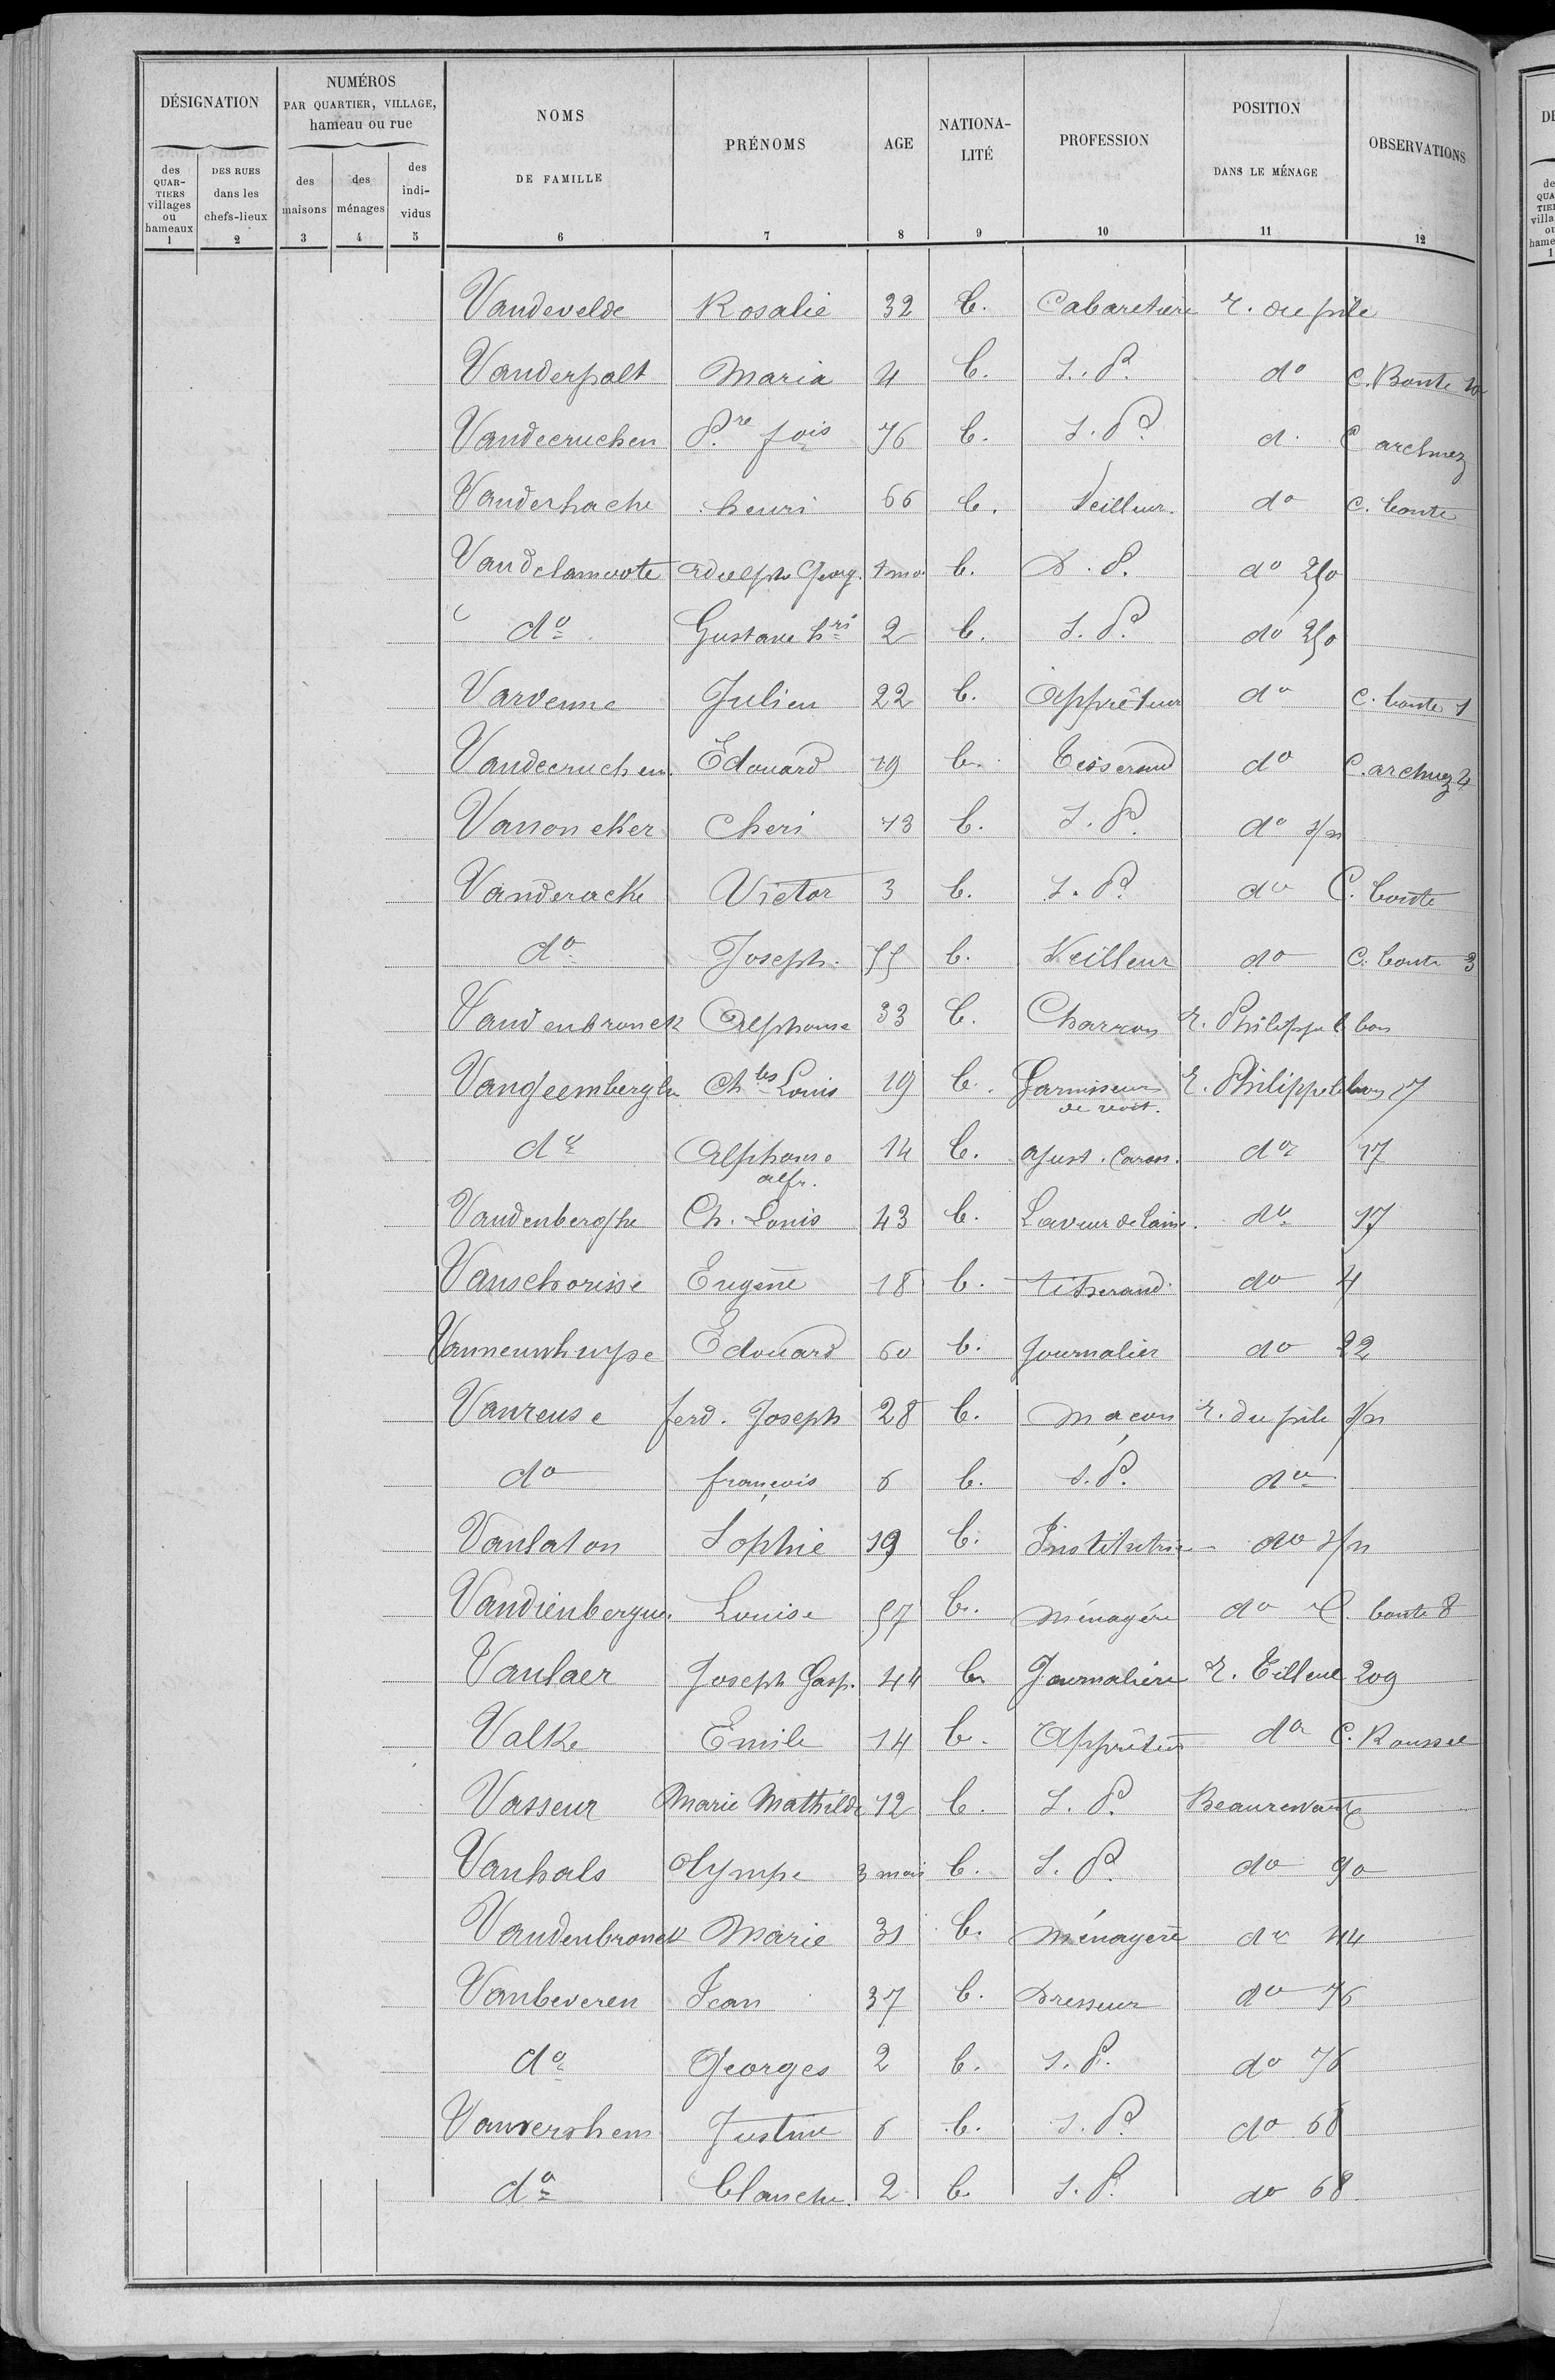 DÉSIGNATION
NUMÉROS
PAR QUARTIER, VILLAGE,
hameau ou rue
NOMS
DE FAMILLE
PRÉNOMS
AGE
NATIONA-
LITÉ
PROFESSION
POSITION
DANS LE MÉNAGE
OBSERVATIONS
des
QUAR-
TIERS
villages
ou
hameaux
DES RUES
dans les
chefs-lieux
des
maisons
des
ménages
des
indi-
vidus
1 2 3 4 5 6 7 8 9 10 11 12
Vandevelde Rosalie 32 b. Cabaretière r. du pile
Vanderpalt Maria 4 b. S. P. do C. Bonte 10
Vandecruchen P.re fois 76 b. S. P. d. C archmez
Vanderhache henri 66 b. Veilleur do C. bonte
Vandelamoote Adolphe Georg. 4 mo. b. S. P. do 250
do Gustave hri 2 b. S. P. do 250
Varvenne Julien 22 b. Apprêteur do C. bonte 1
Vandecruchen Edouard 19 b. Tisserand do C. archmez 4
Vanoneker Cheri 73 b. S. P. do s/n
Vanderacke Victor 3 b. S. P. do C. bonte
do Joseph 55 b. Veilleur do C. bonte 3
Vandenbronck Alphonse 33 b. Charron r. Philippe le bon
Vangeembergh Ch les Louis 19 b. Garnisseur de r. Philippe le bon 17
do Alphonse alfr. 14 b. ajust. do 17
Vandenberghe Ch. Louis 43 b. Laveur de laine do 17
Vanschorisse Eugène 18 b. titserand do 4
Vanneuwhuyse Edouard 60 b. Journalier do 22
Vanreuse ferd. Joseph 28 b. maçon r. du pile s/n
do françois 6 b. S. P. do
Vanlaton Sophie 19 b. Institutrice do s/n
Vandienbergue Louise 57 b. ménagère do C. bonte 8
Vanlaer Joseph Gasp. 44 b. Journalière r. Tilleul 209
Valke Emile 14 b. Apprêteur do C. Roussel
Vasseur Marie Mathilde 12 b. S. P. Beaurewart
Vanhals Olympe 3 mois b. S. P. do 90
Vandenbronck Marie 31 b. ménagère do 44
Vanbeveren Jean 37 b. Dresseur do 76
do Georges 2 b. S. P. do 76
Vanvershem Justine 6 b. S. P. do 68
do blanche 2 b. S. P. do 68